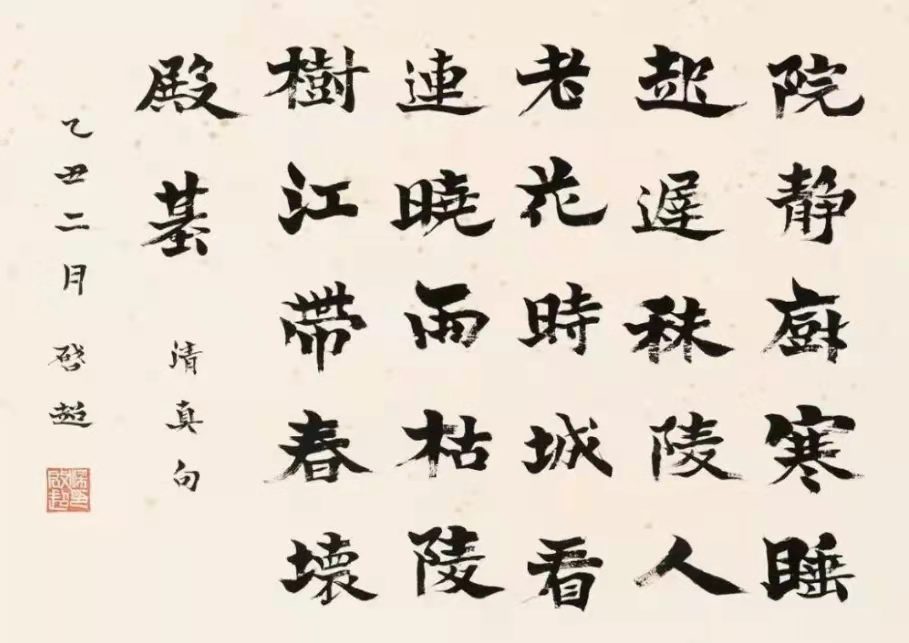 院静廚寒睡
起遲秣陵人
老花時城看
連曉雨枯陵
樹江帶春壞
殿基
清真句
乙丑二月 啓超